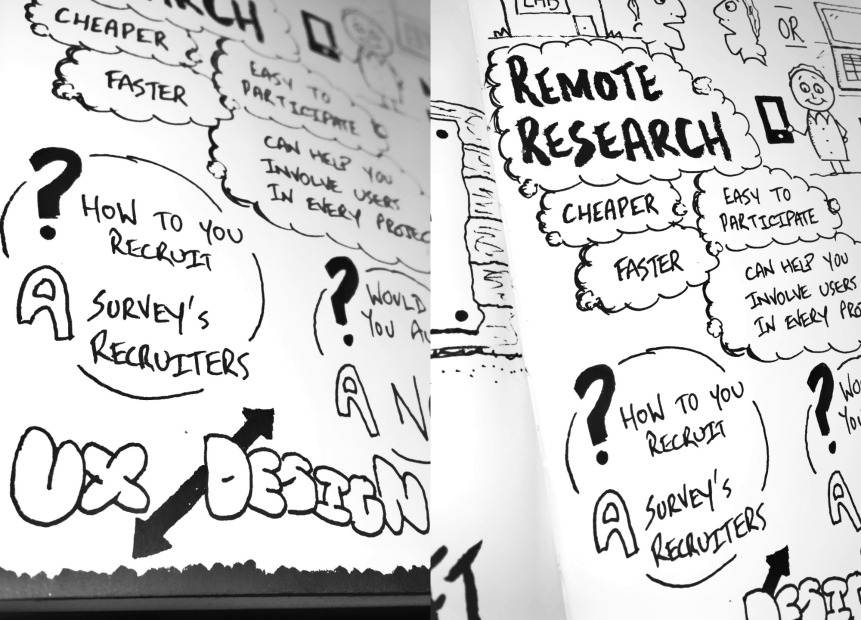 CHEAPER
FASTER
EASY TO
PARTICIPATE
CAN HELP YOU
INVOLVE USERS
IN EVERY PROJEC
?
HOW TO YOU
RECRUIT
A
SURVEY'S
RECRUITERS
?
WOULD
YOU
A
UX DESIGN
LAB
OR
REMOTE
RESEARCH
CHEAPER
FASTER
EASY TO
PARTICIPATE
CAN HELP YOU
INVOLVE USERS
IN EVERY PRO
?
HOW TO YOU
RECRUIT
A
SURVEY'S
RECRUITERS
?
WO
YOU
A
DESIG